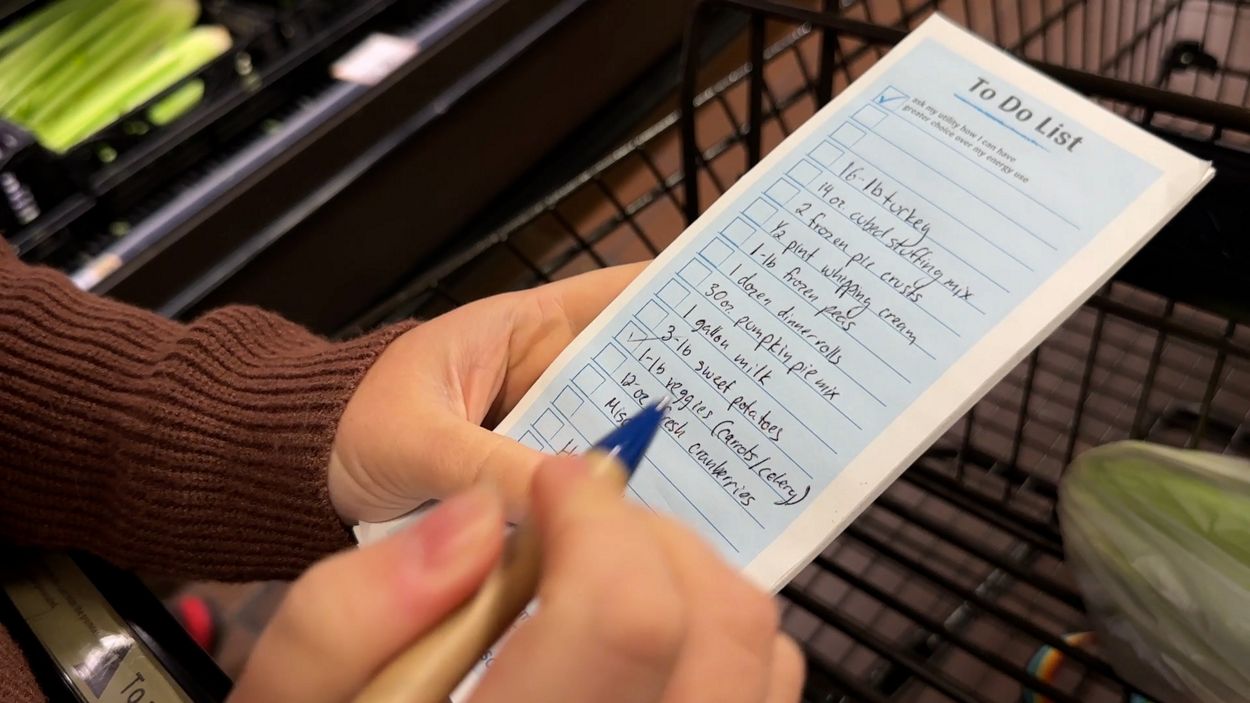 To Do List
ask my utility how I can have
greater choice over my energy use
16-lb turkey
14 oz. cubed stuffing mix
2 frozen pie crusts
1/2 pint whipping cream
1-lb frozen peas
1 dozen dinner rolls
30 oz. pumpkin pie mix
1 gallon milk
3-lb sweet potatoes
1-lb veggies (carrots/celery)
12-oz fresh cranberries
Misc